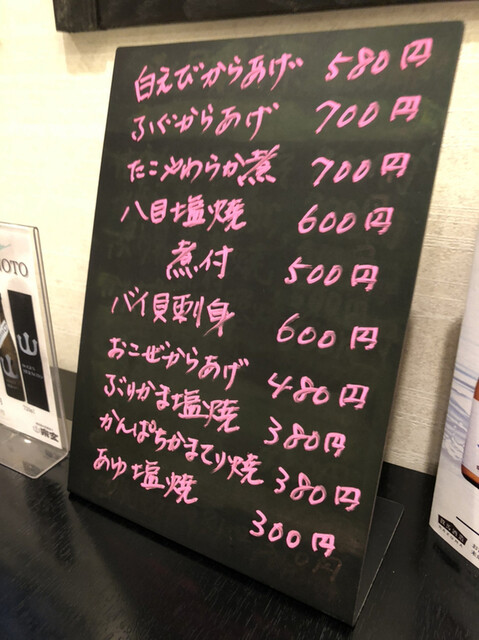 白えびからあげ 580円
ふぐからあげ 700円
たこやわらか煮 700円
八目塩焼 600円
煮付 500円
バイ貝刺身 600円
おこぜからあげ 480円
ぶりかま塩焼 380円
かんぱちかまてり焼 380円
あゆ塩焼 300円
OTO